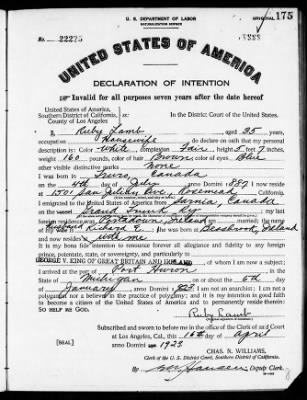 U. S. DEPARTMENT OF LABOR
NATURALIZATION SERVICE
ORIGINAL 175
No. 22275
UNITED STATES OF AMERICA
DECLARATION OF INTENTION
Invalid for all purposes seven years after the date hereof
United States of America,
Southern District of California, ss:
County of Los Angeles
In the District Court of the United States.
I, Ruby Lamb, aged 35 years,
occupation Housewife, do declare on oath that my personal
description is: Color White, complexion Fair, height 5 feet 7 inches,
weight 160 pounds, color of hair Brown, color of eyes Blue
other visible distinctive marks None
I was born in Canada
on the 4th day of July, anno Domini 1887; I now reside
at Ave., Rosemead, California.
I emigrated to the United States of America from Sarnia, Canada
on the vessel Grand Trunk; my last
foreign residence was Ireland
husband Richard; was born at Bessbrook, Ireland
and now resides with me
It is my bona fide intention to renounce forever all allegiance and fidelity to any foreign
prince, potentate, state, or sovereignty, and particularly to
GEORGE V. KING OF GREAT BRITAIN AND IRELAND, of whom I am now a subject;
I arrived at the port of Port Huron, in the
State of Michigan, on or about the 6th day
of January, anno Domini 1923; I am not an anarchist; I am not a
polygamist nor a believer in the practice of polygamy; and it is my intention in good faith
to become a citizen of the United States of America and to permanently reside therein:
SO HELP ME GOD.
Ruby Lamb
Subscribed and sworn to before me in the office of the Clerk of said Court
at Los Angeles, Cal., this 16th day of April
anno Domini 1923
[SEAL]
CHAS. N. WILLIAMS,
Clerk of the U. S. District Court, Southern District of California.
By Hansen, Deputy Clerk.